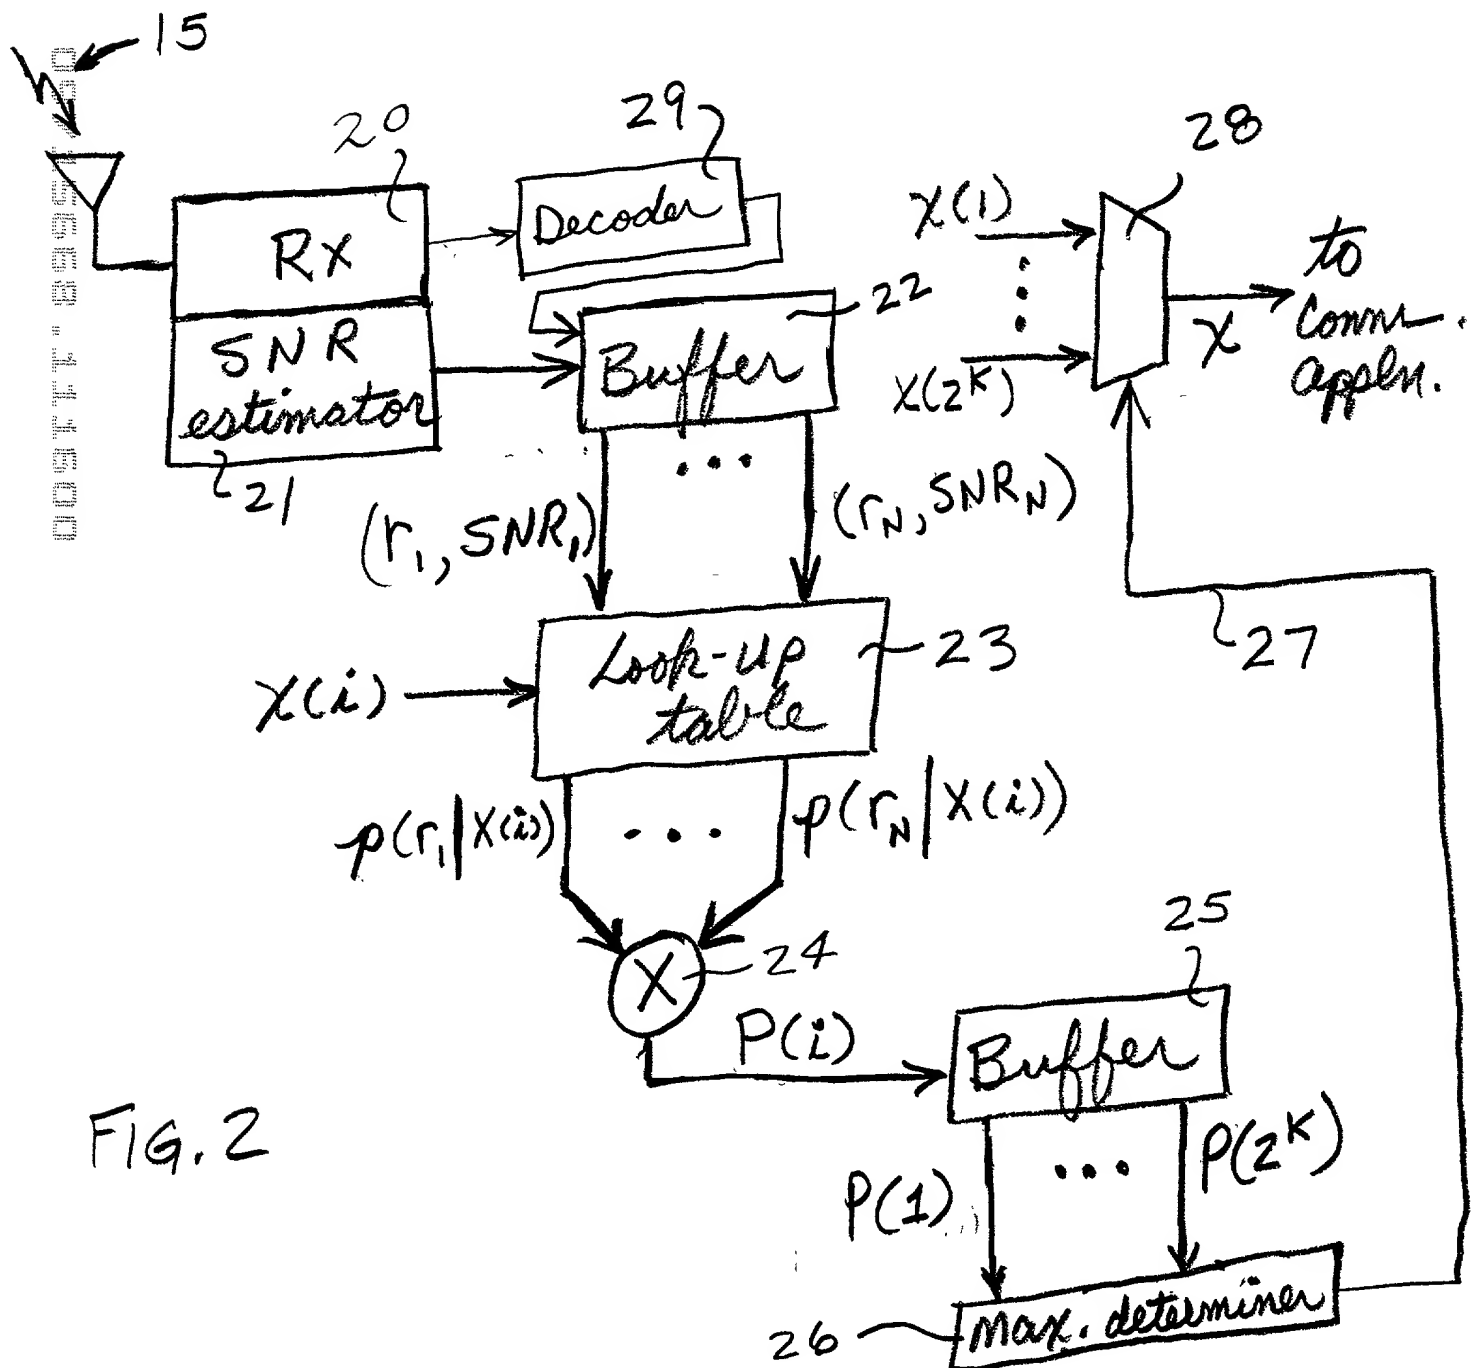 15
20
29
28
Rx
Decoder
X(1)
to
comm.
appln.
X
X(2^K)
22
SNR
estimator
Buffer
21
(r1, SNR1)
(rN, SNRN)
Look-up
table
23
27
X(i)
p(r1|X(i))
p(rN|X(i))
X
24
P(i)
25
Buffer
FIG. 2
P(1)
P(2^K)
26
max. determiner